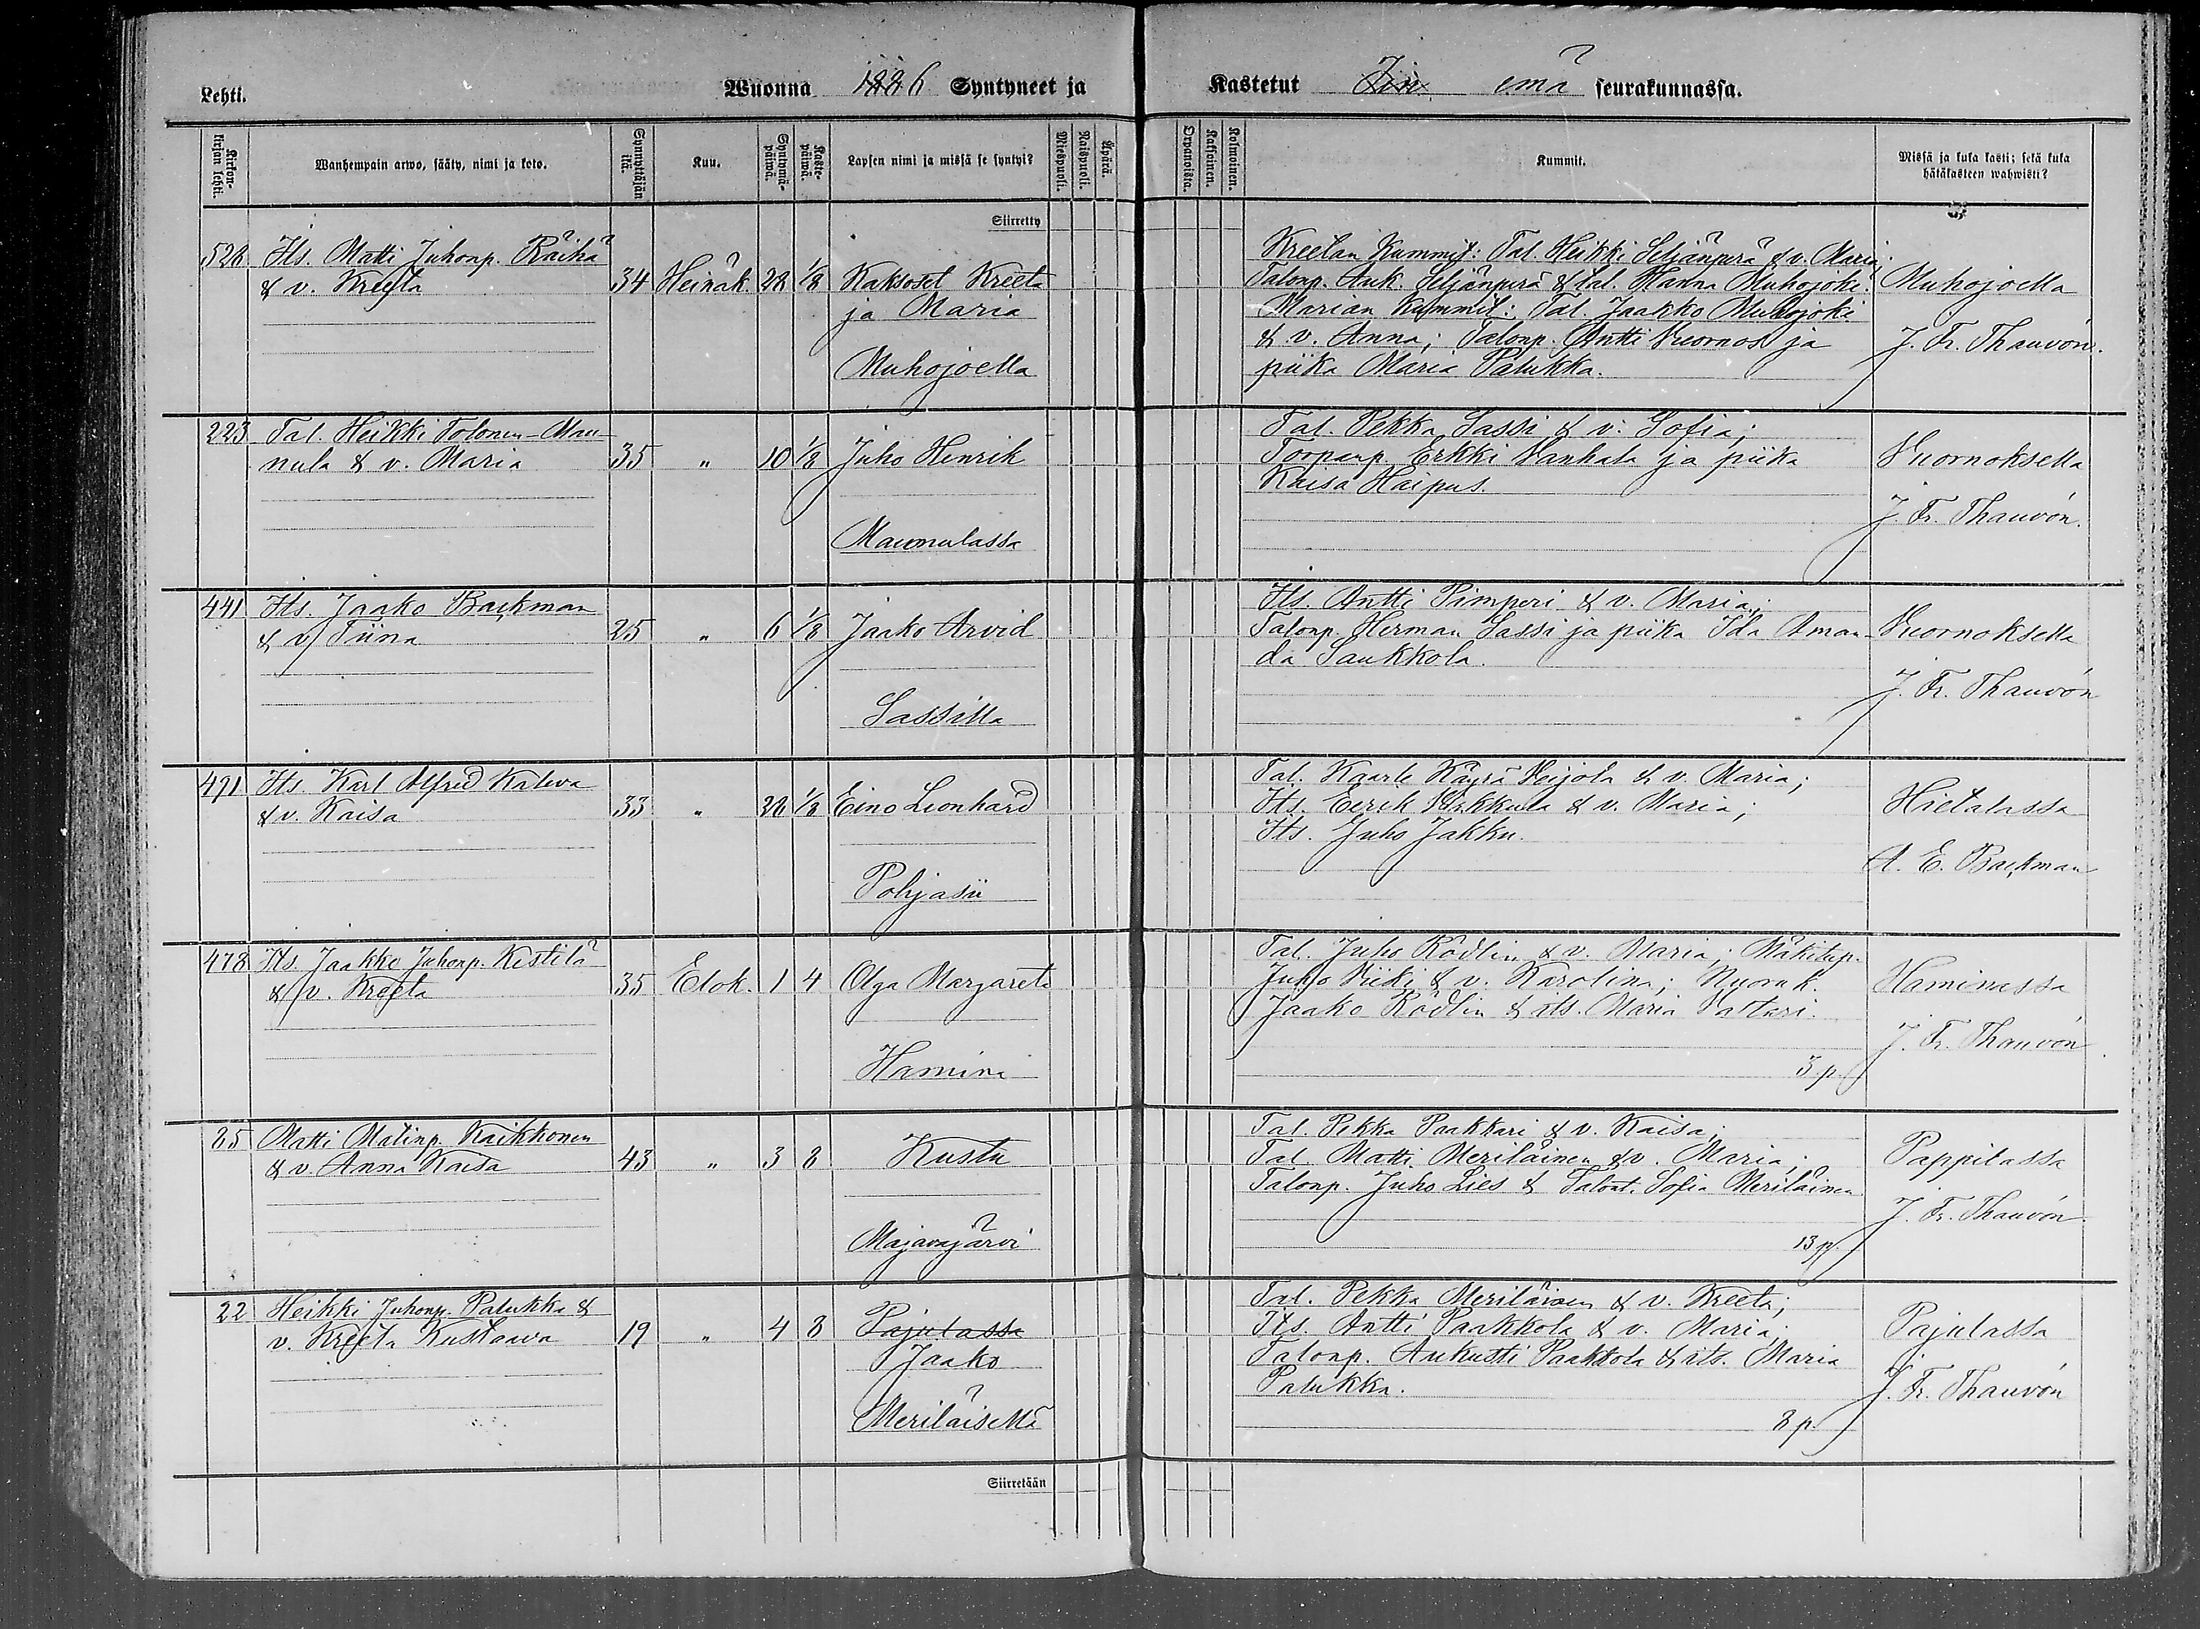 Lehti. Wuonna 1886 Syntyneet ja Kastetut Iin emä seurakunnassa.
Kirkon-kirjan lehti. Wanhempain arwo, sääty, nimi ja koto. Synnyttäjän ikä. Kuu. Syntymä-päiwä. Kaste-päiwä. Lapsen nimi ja missä se syntyi? Miespuoli. Naispuoli. Äpärä. Orpanoista. Kaksoinen. Kolmoinen. Kummit. Missä ja kuka kasti; sekä kuka hätäkasteen wahwisti?
Siirretty
528 Its. Matti Juhonp. Räihä
& v. Kreeta 34 Heinäk. 28 1/8 Kaksoset Kreeta
ja Maria
Muhojoella
Kreetan Kummit: Tal. Heikki Seljänperä & v. Maria;
Talonp. Auk. Seljänperä & tal. Hanna Muhojoki.
Marian Kummit: Tal. Jaakko Muhojoki
& v. Anna; Talonp. Antti Vuornos ja
piika Maria Palukka.
Muhojoella
J. Fr. Thauvón.
223 Tal. Heikki Tolonen-Mau-
nula & v. Maria 35 " 10 1/8 Juho Henrik
Maunulassa
Tal. Pekka Sassi & v. Sofia;
Torpanp. Erkki Vanhala ja piika
Kaisa Haipus.
Vuornoksella
J. Fr. Thauvón.
441 Its. Jaako Backman
& v. Tiina 25 " 6 1/8 Jaako Arvid
Sassilla
Its. Antti Pimperi & v. Maria;
Talonp. Herman Sassi ja piika Ida Aman-
da Saukkola.
Vuornoksella
J. Fr. Thauvón
471 Its. Karl Alfred Kaleva
& v. Kaisa 33 " 28 1/8 Eino Leonhard
Pohjasii
Tal. Kaarle Käyrä Veijola & v. Maria;
Its. Eerik & v. Maria;
Its. Juho Jakku.
Hietalassa
A. E. Backman
478 Its. Jaakko Juhonp. Kestilä
& v. Kreeta 35 Elok. 1 4 Olga Margareta
Hamina
Tal. Juho Rödlin & v. Maria; Mäkitup.
Juho Viiki & v. Karolina; Nuork.
Jaako Rödlin & its. Maria Pattari.
3 p.
Haminassa
J. Fr. Thauvón.
85 Matti Matinp. Kaikkonen
& v. Anna Kaisa 43 " 3 8 Kustu
Majavajärvi
Tal. Pekka Paakkari & v. Kaisa;
Tal. Matti Meriläinen & v. Maria;
Talonp. Juho Lies & Talont. Sofia Meriläinen
13 p.
Pappilassa
J. Fr. Thauvón.
22 Heikki Juhonp. Palukka &
v. Kreeta Kustaava 19 " 4 8 Pajulassa
Jaako
Meriläisellä
Tal. Pekka Meriläinen & v. Kreeta;
Its. Antti Paakkola & v. Maria;
Talonp. Aukusti Paakkola & its. Maria
Palukka.
8 p.
Pajulassa
J. Fr. Thauvón
Siirretään